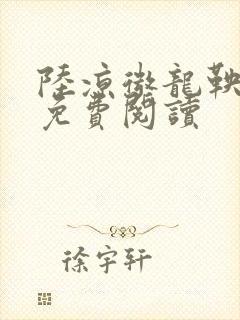 陸凉徵龍鞅
免費閱讀
徐宇轩